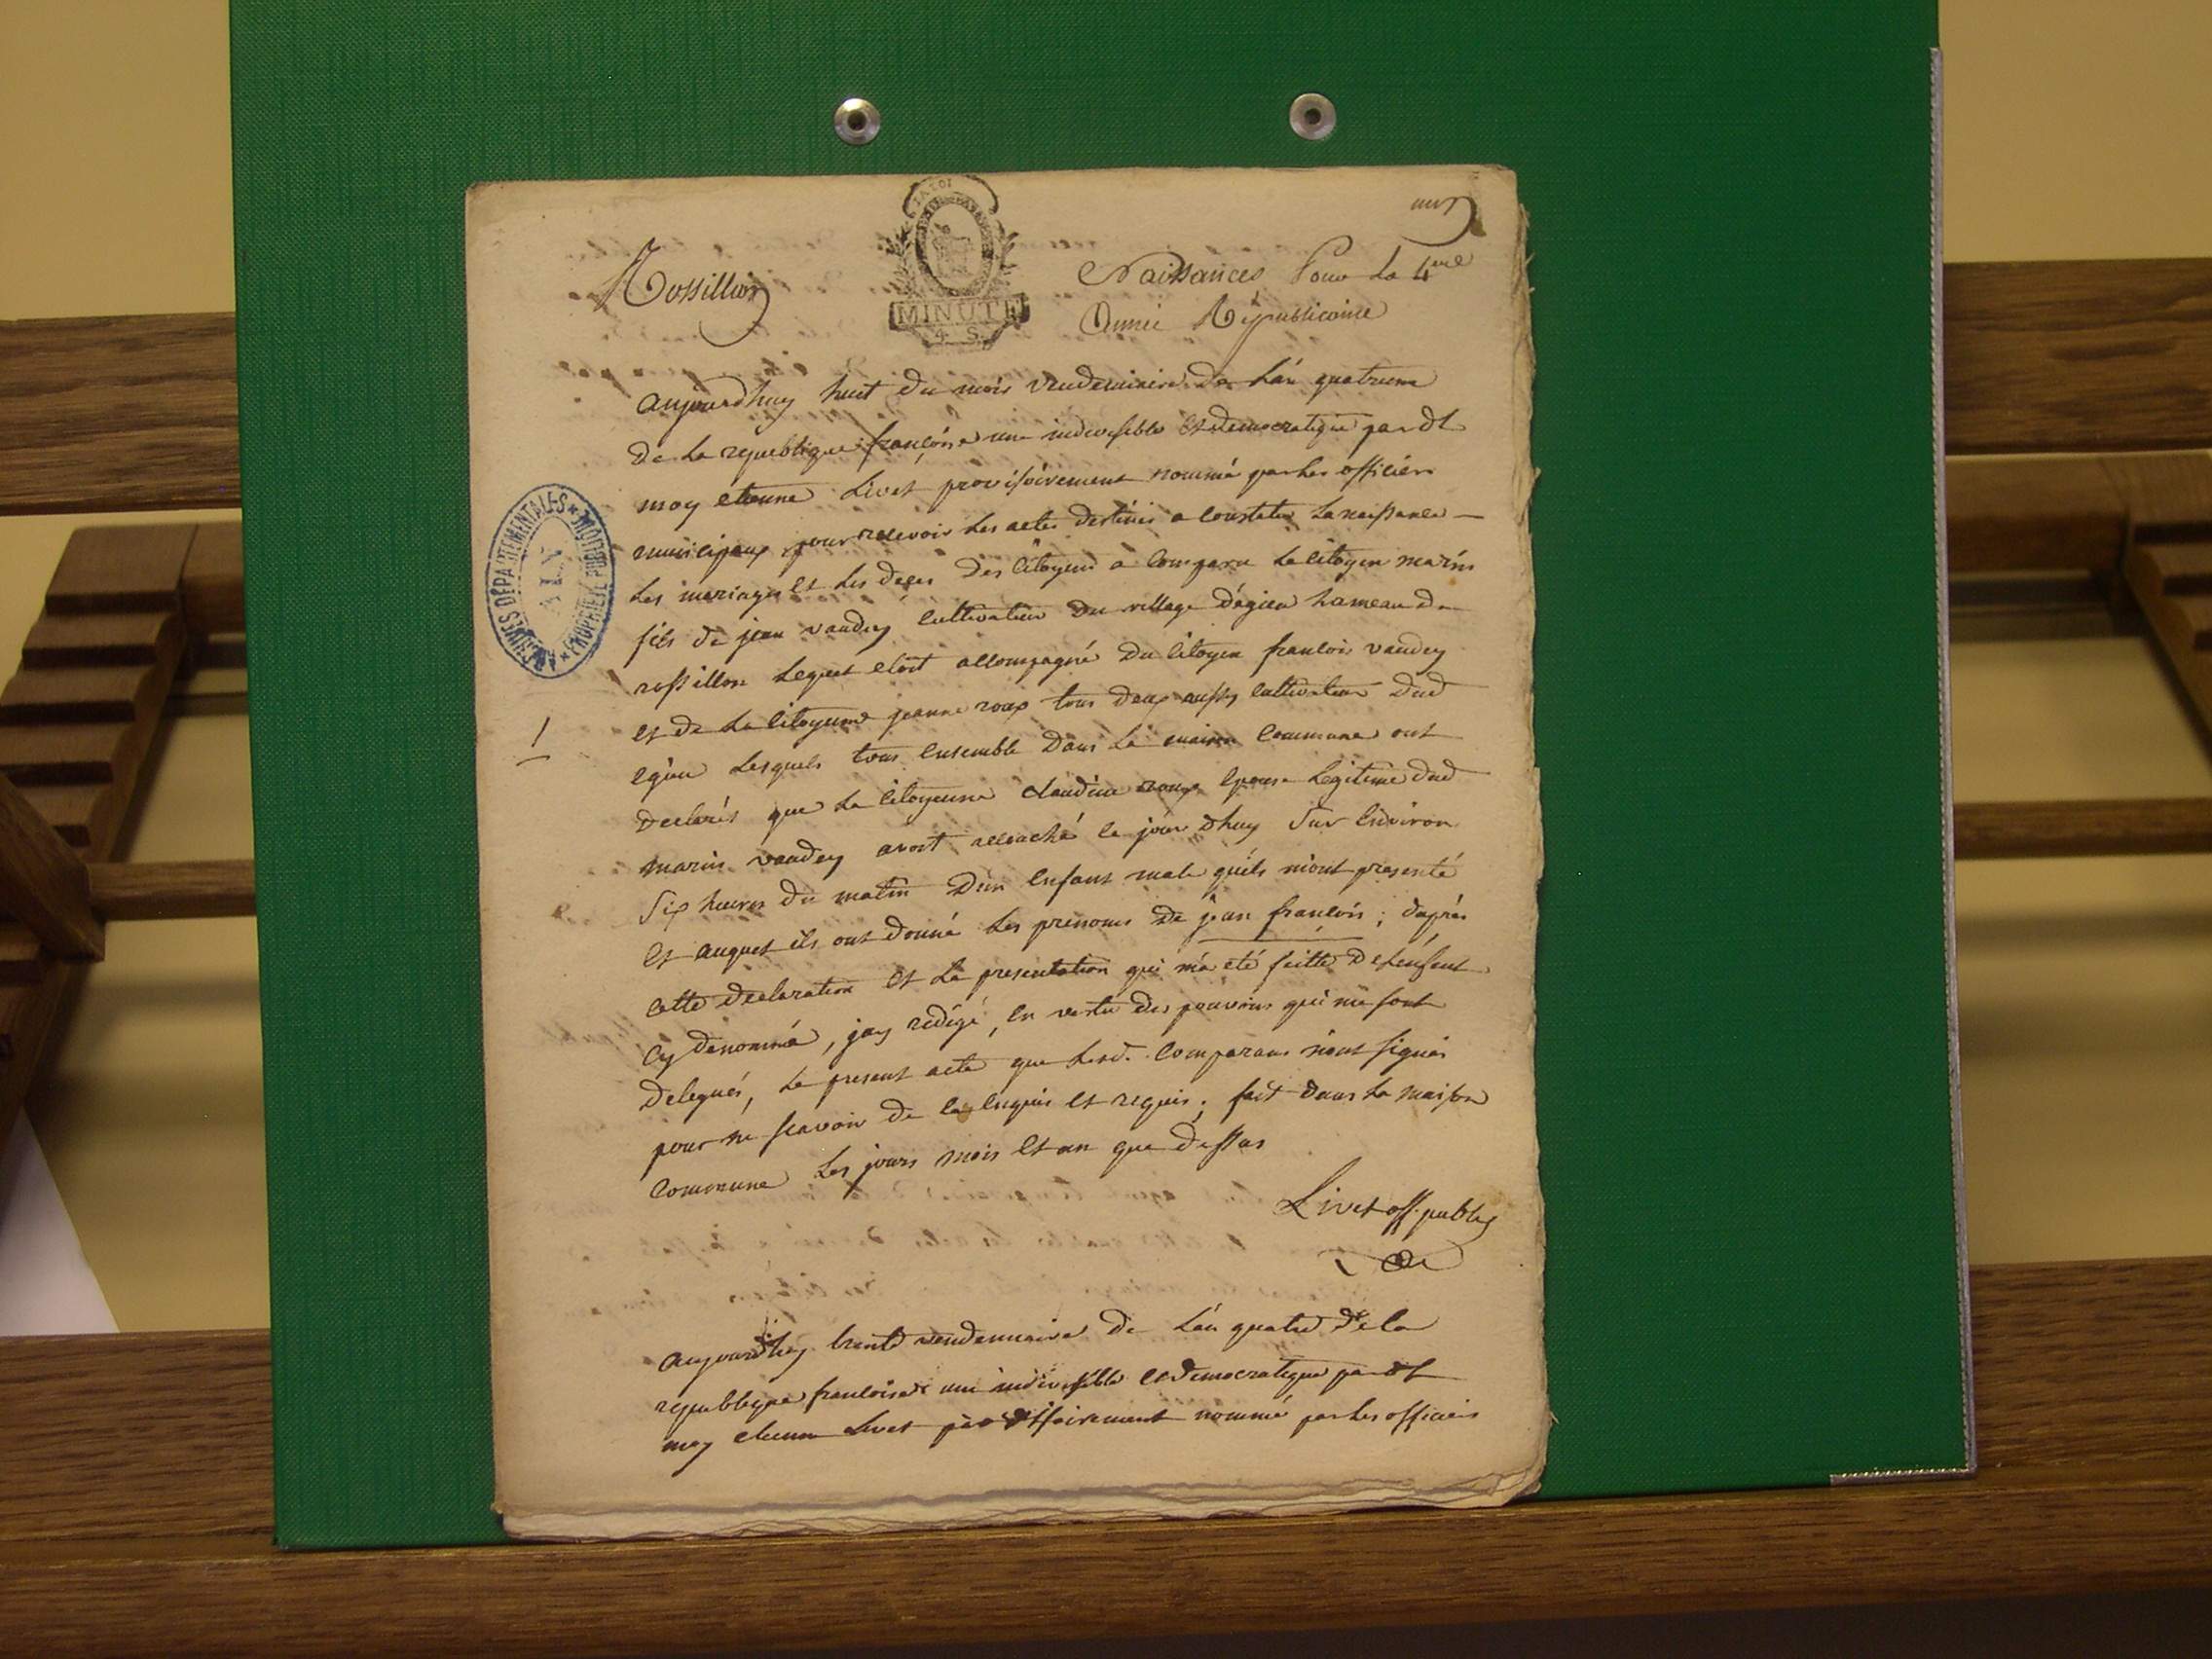 un
LA LOI
MINUTE
4 S.
Rossillion
Naissances Pour La 4eme
Année Républicaine
ARCHIVES DÉPARTEMENTALES * PROPRIÉTÉ PUBLIQUE *
AIN
1
aujourdhuy huit du mois vendemiaire de L'an quatrieme
de La republique françoise une indivisible et democratique par dt
moy etienne Livet provisoirement nommé par Les officiers
municipaux pour recevoir Les actes destinés a constater La naissance
Les mariages et Les deces des citoyens a comparu Le citoyen marin
fils de jean vaudey cultivateur du village d'egieu hameau de
rossillon Lequel etoit accompagné du citoyen francois vaudey
et de La citoyenne jeanne roux tous deux aussy cultivateur dud
egieu Lesquels tous ensemble dans La maison commune ont
declarés que La citoyenne claudine roux epouse Legitime dud
marin vaudey avoit accouché ce jour dhuy sur Environ
six heures du matin d'un enfant male quils m'ont presenté
et auquel ils ont donné Les prenoms de jean francois ; daprès
cette declaration et La presentation qui m'a eté faitte de Lenfant
cy denommé, jay redigé, en vertu des pouvoirs qui me sont
delegués, Le present acte que Lesd. comparans n'ont signés
pour ne scavoir de ce enquis et requis ; fait dans La maison
commune Les jours mois et an que dessus
Livet off. public
aujourdhuy trente vendemiaire de L'an quatre de la
republique francoise une indivisible et democratique par dt
moy etienne Livet provisoirement nommé par Les officiers